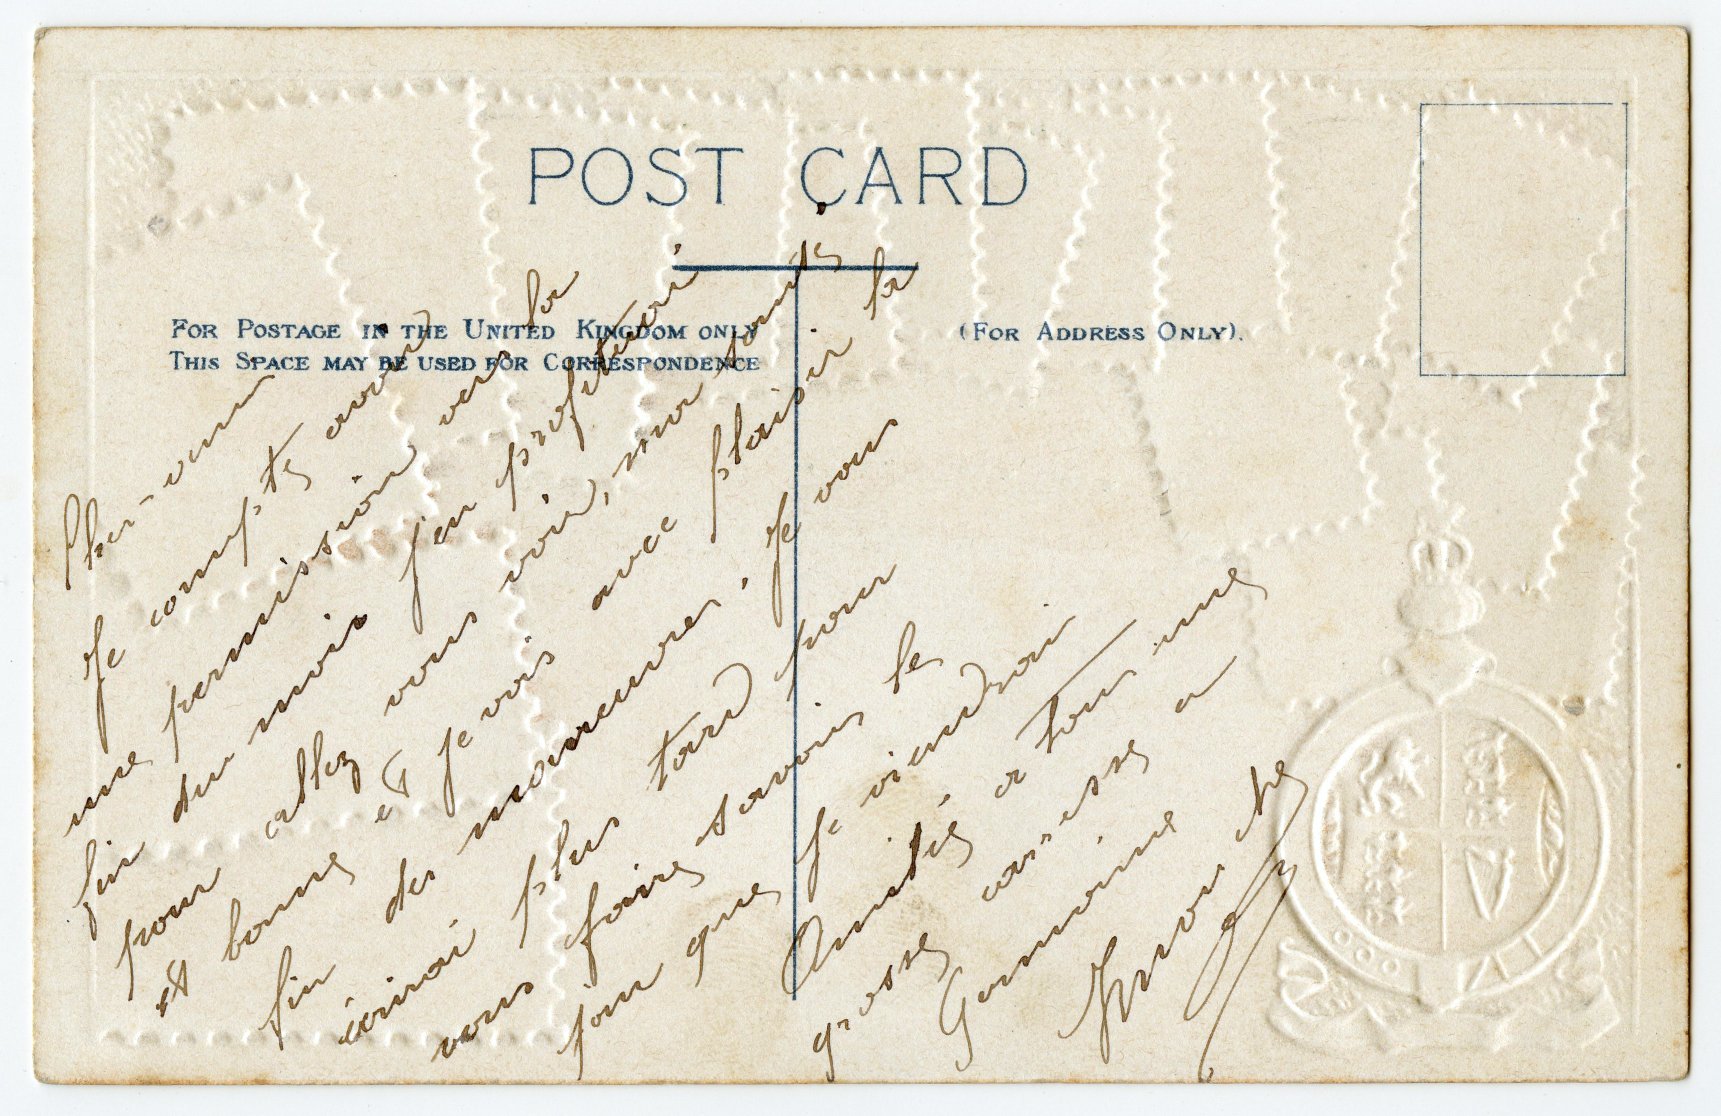 POST CARD
FOR POSTAGE IN THE UNITED KINGDOM ONLY
THIS SPACE MAY BE USED FOR CORRESPONDENCE
(FOR ADDRESS ONLY).
Cher
Je compte avoir
une permission vers la
fin du mois j'en profiterai
pour allez vous voir, ma santé
et bonne et je vois avec plaisir la
fin des manoeuvres, Je vous
écrirai plus tard pour
vous faires savoir le
jour que je viendrai
Amitiés a tous une
grosse caresse a
Germaine